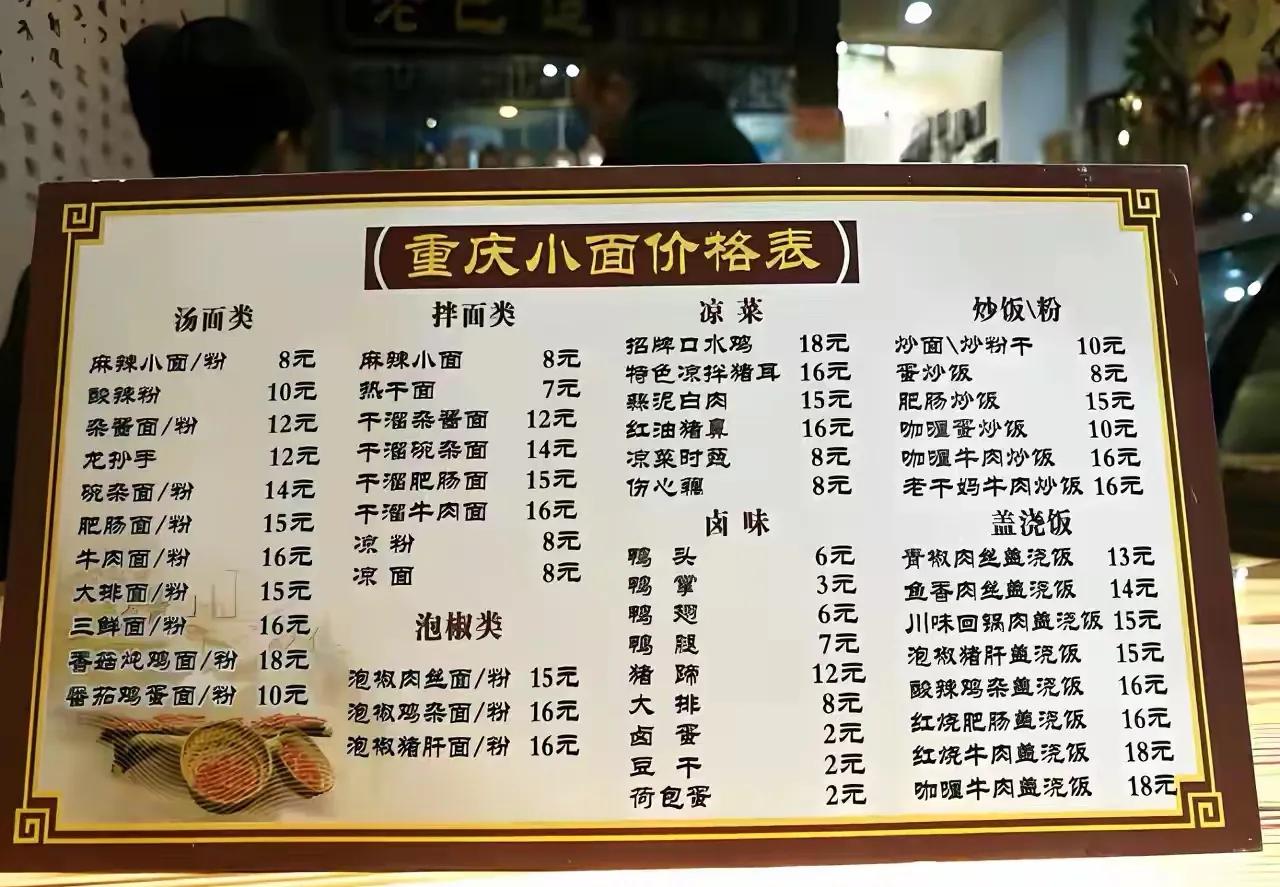 重庆小面价格表
汤面类
麻辣小面/粉 8元
酸辣粉 10元
杂酱面/粉 12元
龙抄手 12元
碗杂面/粉 14元
肥肠面/粉 15元
牛肉面/粉 16元
大排面/粉 15元
三鲜面/粉 16元
香菇炖鸡面/粉 18元
番茄鸡蛋面/粉 10元
拌面类
麻辣小面 8元
热干面 7元
干溜杂酱面 12元
干溜碗杂面 14元
干溜肥肠面 15元
干溜牛肉面 16元
凉粉 8元
凉面 8元
泡椒类
泡椒肉丝面/粉 15元
泡椒鸡杂面/粉 16元
泡椒猪肝面/粉 16元
凉菜
招牌口水鸡 18元
特色凉拌猪耳 16元
蒜泥白肉 15元
红油猪鼻 16元
凉菜时蔬 8元
伤心藕 8元
卤味
鸭头 6元
鸭掌 3元
鸭翅 6元
鸭腿 7元
猪蹄 12元
大排 8元
卤蛋 2元
豆干 2元
荷包蛋 2元
炒饭\粉
炒面\炒粉干 10元
蛋炒饭 8元
肥肠炒饭 15元
咖喱蛋炒饭 10元
咖喱牛肉炒饭 16元
老干妈牛肉炒饭 16元
盖浇饭
青椒肉丝盖浇饭 13元
鱼香肉丝盖浇饭 14元
川味回锅肉盖浇饭 15元
泡椒猪肝盖浇饭 15元
酸辣鸡杂盖浇饭 16元
红烧肥肠盖浇饭 16元
红烧牛肉盖浇饭 18元
咖喱牛肉盖浇饭 18元